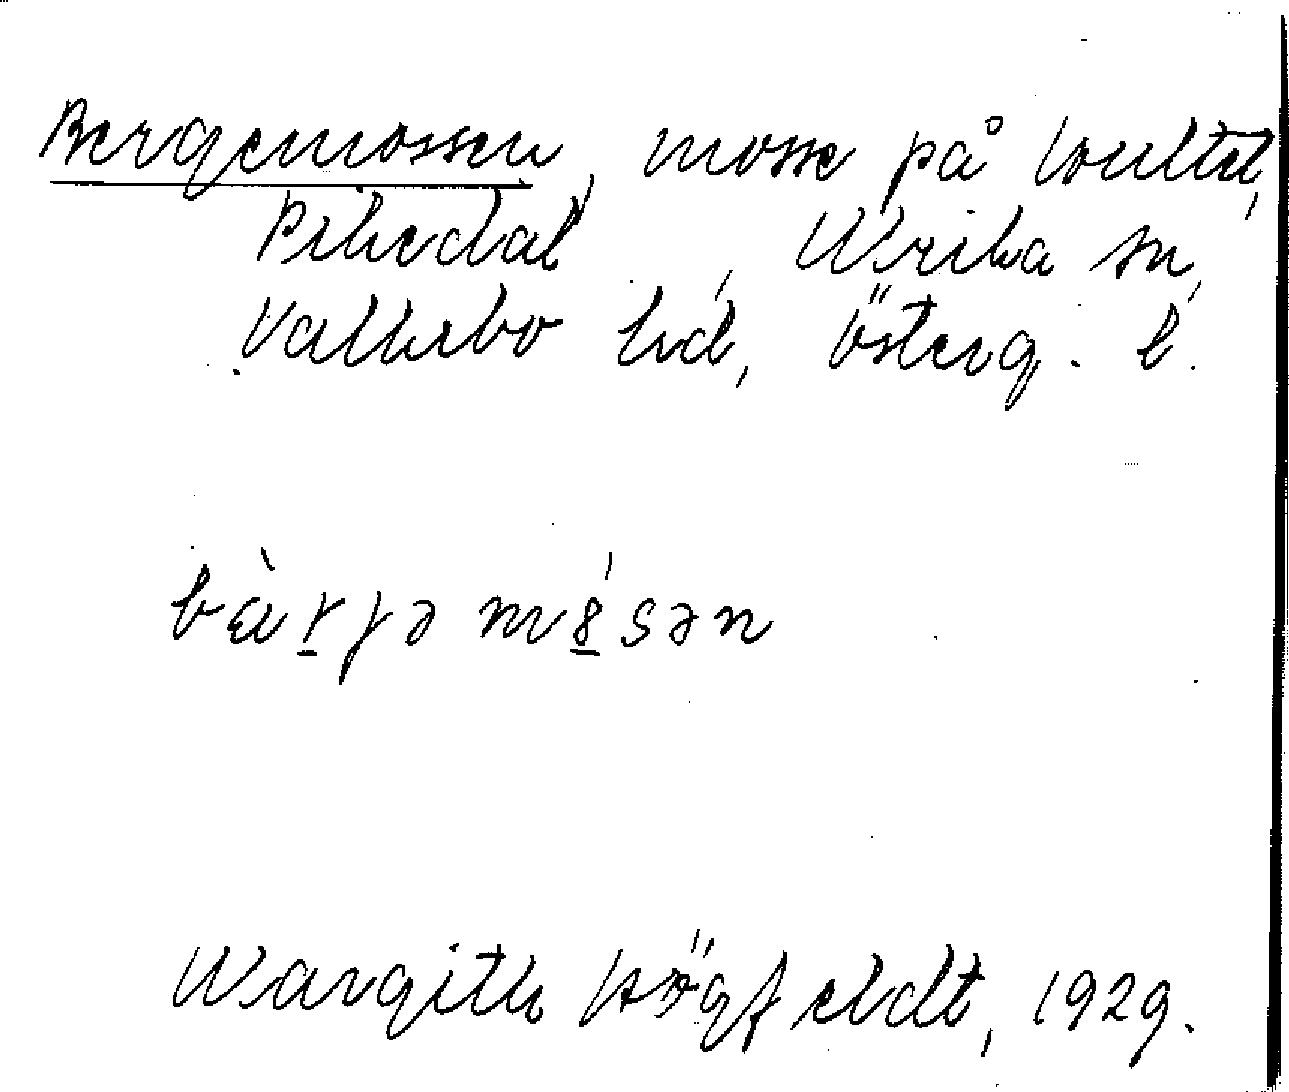 Bergemossen, mosse på boultel,
Pikedal, Ulrika sn,
Valkebo hd, Österg. l.
bàrɟə mósən
Margith Högfeldt, 1929.